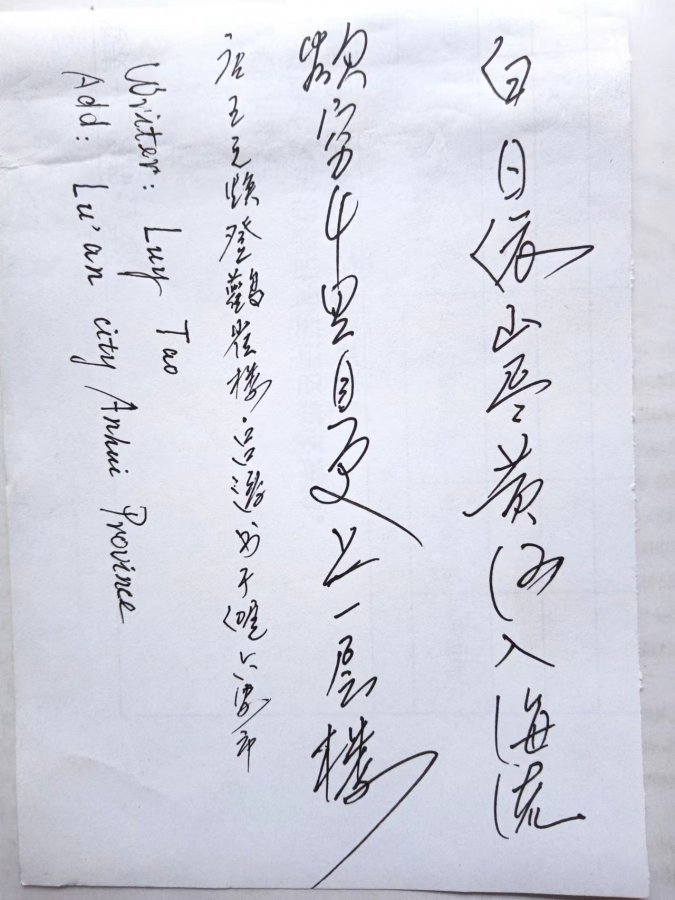 白日依山尽黄河入海流
穷千里目更上一层楼
唐王之焕登鹳雀楼书于皖六安市
Writer: Luy Tao
Add: Lu'an city Anhui Province